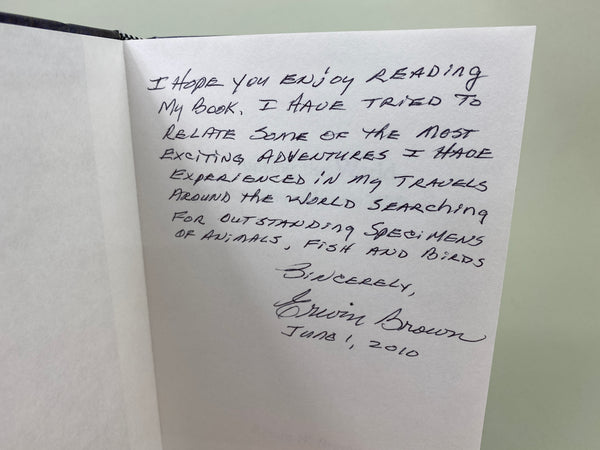 I HOPE YOU ENJOY READING
MY BOOK. I HAVE TRIED TO
RELATE SOME OF THE MOST
EXCITING ADVENTURES I HAVE
EXPERIENCED IN MY TRAVELS
AROUND THE WORLD SEARCHING
FOR OUTSTANDING SPECIMENS
OF ANIMALS, FISH AND BIRDS
SINCERELY,
Erwin Brown
JUNE 1, 2010